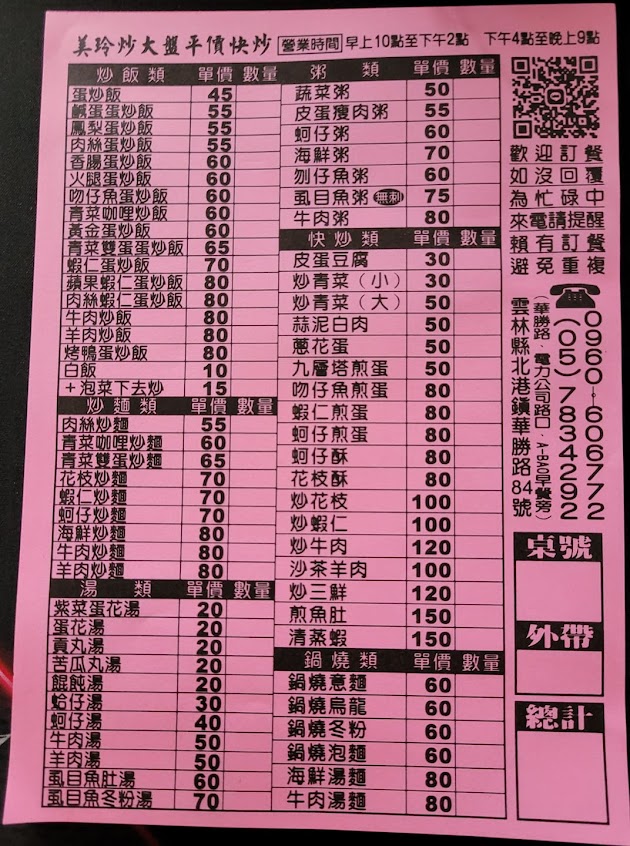 美玲炒大盤平價快炒 營業時間 早上10點至下午2點 下午4點至晚上9點
炒飯類 單價 數量
蛋炒飯 45
鹹蛋蛋炒飯 55
鳳梨蛋炒飯 55
肉絲蛋炒飯 55
香腸蛋炒飯 60
火腿蛋炒飯 60
吻仔魚蛋炒飯 60
青菜咖哩炒飯 60
黃金蛋炒飯 60
青菜雙蛋蛋炒飯 65
蝦仁蛋炒飯 70
蘋果蝦仁蛋炒飯 80
肉絲蝦仁蛋炒飯 80
牛肉炒飯 80
羊肉炒飯 80
烤鴨蛋炒飯 80
白飯 10
+泡菜下去炒 15
炒麵類 單價 數量
肉絲炒麵 55
青菜咖哩炒麵 60
青菜雙蛋炒麵 65
花枝炒麵 70
蝦仁炒麵 70
蚵仔炒麵 70
海鮮炒麵 80
牛肉炒麵 80
羊肉炒麵 80
湯類 單價 數量
紫菜蛋花湯 20
蛋花湯 20
貢丸湯 20
苦瓜丸湯 20
餛飩湯 20
蛤仔湯 30
蚵仔湯 40
牛肉湯 50
羊肉湯 50
虱目魚肚湯 60
虱目魚冬粉湯 70
粥類 單價 數量
蔬菜粥 50
皮蛋瘦肉粥 55
蚵仔粥 60
海鮮粥 70
刎仔魚粥 60
虱目魚粥 無刺 75
牛肉粥 80
快炒類 單價 數量
皮蛋豆腐 30
炒青菜（小） 30
炒青菜（大） 50
蒜泥白肉 50
蔥花蛋 50
九層塔煎蛋 50
吻仔魚煎蛋 80
蝦仁煎蛋 80
蚵仔煎蛋 80
蚵仔酥 80
花枝酥 80
炒花枝 100
炒蝦仁 100
炒牛肉 120
沙茶羊肉 100
炒三鮮 120
煎魚肚 150
清蒸蝦 150
鍋燒類 單價 數量
鍋燒意麵 60
鍋燒烏龍 60
鍋燒冬粉 60
鍋燒泡麵 60
海鮮湯麵 80
牛肉湯麵 80
歡迎訂餐
如沒回覆
為忙碌中
來電請提醒
賴有訂餐
避免重複
0960-606772
(05)7834292
（華勝路、電力公司路口、A-BAO早餐旁）
雲林縣北港鎮華勝路84號
桌號
外帶
總計